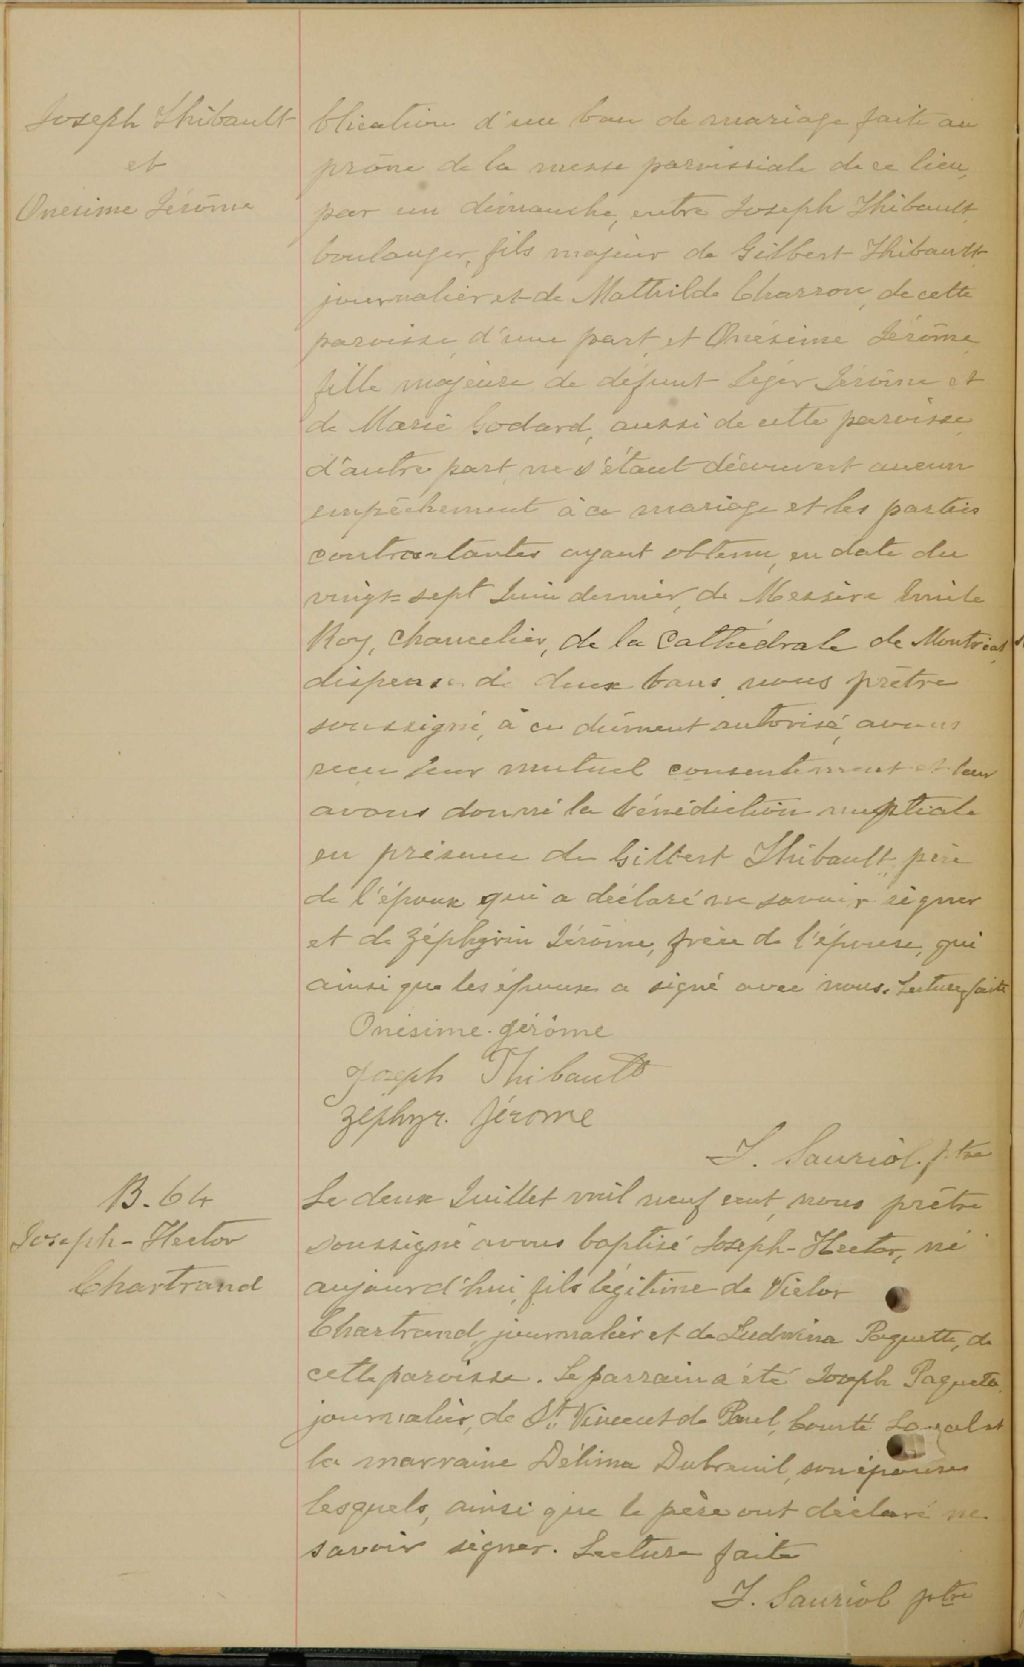 Joseph Thibault
et
Onésime Jérôme
blication d'un ban de mariage faite au
prône de la messe paroissiale de ce lieu,
par un dimanche, entre Joseph Thibault,
boulanger, fils majeur de Gilbert Thibault
journalier et de Mathilde Charron, de cette
paroisse, d'une part, et Onésime Jérôme,
fille majeure de défunt Léger Jérôme et
de Marie Godard, aussi de cette paroisse,
d'autre part, ne s'étant découvert aucun
empêchement à ce mariage et les parties
contractantes ayant obtenu, en date du
vingt-sept Juin dernier, de Messire Emile
Roy, Chancelier, de la Cathédrale de Montréal
dispense de deux bans, nous prêtre
soussigné, à ce dûment autorisé, avons
reçu leur mutuel consentement et leur
avons donné la bénédiction nuptiale
en présence de Gilbert Thibault, père
de l'époux qui a déclaré ne savoir signer
et de Zéphyrin Jérôme, frère de l'épouse, qui
ainsi que les époux a signé avec nous. Lecture faite
Onésime Jérôme
Joseph Thibault
Zéphyr. Jérome
J. Sauriol. ptre
B. 64
Joseph-Hector
Chartrand
Le deux Juillet mil neuf cent, nous prêtre
soussigné avons baptisé Joseph-Hector, né
aujourd'hui, fils légitime de Victor
Chartrand, journalier et de Ludwina Paquette, de
cette paroisse. Le parrain a été Joseph Paquette,
journalier, de St. Vincent de Paul, Comté Laval et
la marraine Délima Dubreuil, son épouse
lesquels, ainsi que le père ont déclaré ne
savoir signer. Lecture faite
J. Sauriol ptre